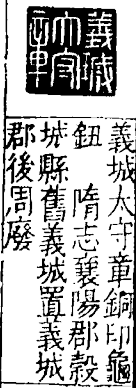 義城
太守
章
義城太守章銅印龜
鈕　隋志襄陽郡穀
城縣舊義城置義城
郡後周廢